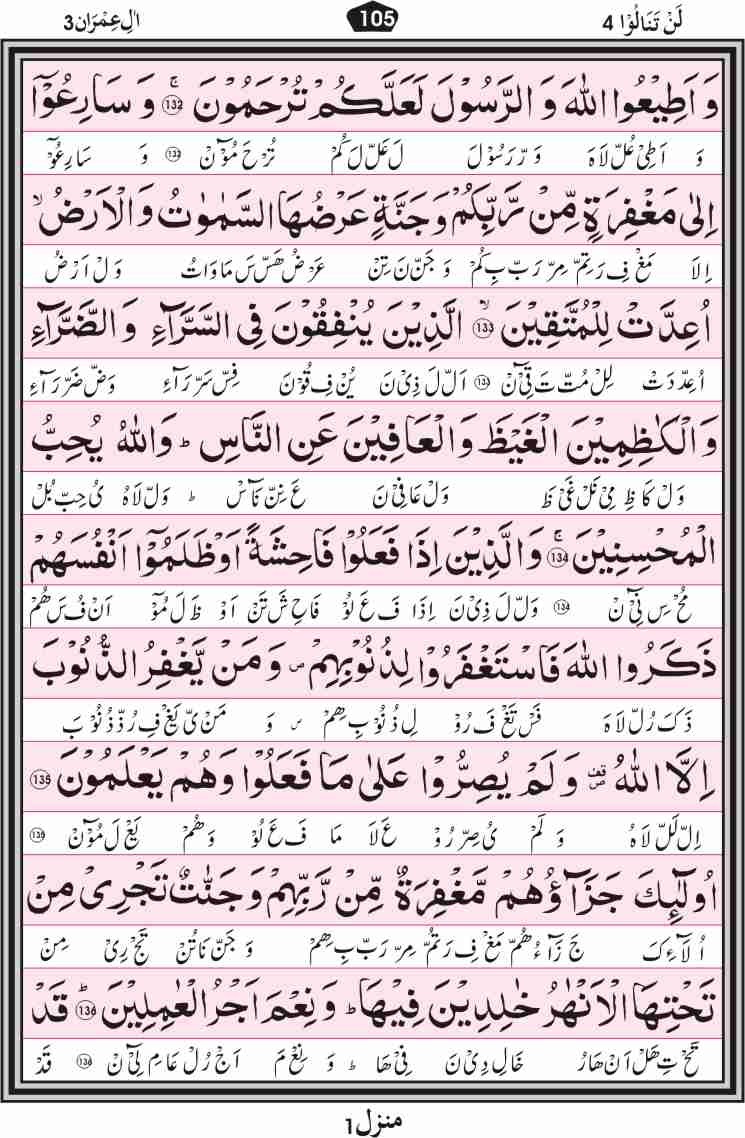 لَنْ تَنَالُوْا 4 105 اٰلِ عِمْرَان3
وَ اَطِيْعُوا اللّٰهَ وَ الرَّسُوْلَ لَعَلَّكُمْ تُرْحَمُوْنَ ۚ ﴿132﴾ وَ سَارِعُوْۤا
وَ اَطِىْ عُلّ لَاهَ وَ رّ رَسُوْلَ لَ عَلّ لَ كُمْ تُرْ حَ مُوْٓنْ ﴿132﴾ وَ سَارِعُوْٓ
اِلٰى مَغْفِرَةٍ مِّنْ رَّبِّكُمْ وَ جَنَّةٍ عَرْضُهَا السَّمٰوٰتُ وَ الْاَرْضُ ۙ
اِلَا مَغْ فِ رَ تِمّ مِرّ رَبّ بِ كُمْ وَ جَنّ نَ تِنْ عَرْ ضُ هَسّ سَ مَا وَاتُ وَ لْ اَرْ ضُ
اُعِدَّتْ لِلْمُتَّقِيْنَ ۙ ﴿133﴾ الَّذِيْنَ يُنْفِقُوْنَ فِى السَّرَّآءِ وَ الضَّرَّآءِ
اُ عِدّ دَتْ لِلْ مُتّ تَ قِىْٓ نْ ﴿133﴾ اَلّ لَ ذِىْ نَ يُنْ فِ قُوْنَ فِسّ سَرّ رَآءِ وَضّ ضَرّ رَآءِ
وَ الْكٰظِمِيْنَ الْغَيْظَ وَ الْعَافِيْنَ عَنِ النَّاسِ ؕ وَ اللّٰهُ يُحِبُّ
وَ لْ كَا ظِ مِىْ نَلْ غَىْ ظَ وَ لْ عَا فِىْ نَ عَ نِنّ نَآسْ ؕ وَ لّ لَاهُ يُ حِبّ بُلْ
الْمُحْسِنِيْنَ ۚ ﴿134﴾ وَ الَّذِيْنَ اِذَا فَعَلُوْا فَاحِشَةً اَوْ ظَلَمُوْۤا اَنْفُسَهُمْ
مُحْ سِ نِىْٓ نْ ﴿134﴾ وَ لّ لَ ذِىْ نَ اِذَا فَ عَ لُوْ فَا حِ شَ تَنْ اَوْ ظَ لَ مُوْٓ اَنْ فُ سَ هُمْ
ذَكَرُوا اللّٰهَ فَاسْتَغْفَرُوْا لِذُنُوْبِهِمْ ص وَ مَنْ يَّغْفِرُ الذُّنُوْبَ
ذَ كَ رُلّ لَاهَ فَسْ تَغْ فَ رُوْ لِ ذُ نُوْ بِ هِمْ ص وَ مَنْ ىّ يَغْ فِ رُذّ ذُ نُوْ بَ
اِلَّا اللّٰهُ قف ص وَ لَمْ يُصِرُّوْا عَلٰى مَا فَعَلُوْا وَ هُمْ يَعْلَمُوْنَ ﴿135﴾
اِلّ لَلّ لَاهُ وَ لَمْ يُ صِرّ رُوْ عَ لَا مَا فَ عَ لُوْ وَ هُمْ يَعْ لَ مُوْٓنْ ﴿135﴾
اُولٰٓئِكَ جَزَآؤُهُمْ مَّغْفِرَةٌ مِّنْ رَّبِّهِمْ وَ جَنّٰتٌ تَجْرِىْ مِنْ
اُ لَآءِ كَ جَ زَآءُ هُمّ مَغْ فِ رَ تُمّ مِرّ رَبّ بِ هِمْ وَ جَنّ نَا تُنْ تَجْ رِىْ مِنْ
تَحْتِهَا الْاَنْهٰرُ خٰلِدِيْنَ فِيْهَا ؕ وَ نِعْمَ اَجْرُ الْعٰمِلِيْنَ ؕ ﴿136﴾ قَدْ
تَحْ تِ هَلْ اَنْ هَارُ خَالِ دِىْ نَ فِىْ هَا ؕ وَ نِعْ مَ اَجْ رُلْ عَا مِ لِىْٓ نْ ﴿136﴾ قَدْ
منزل1